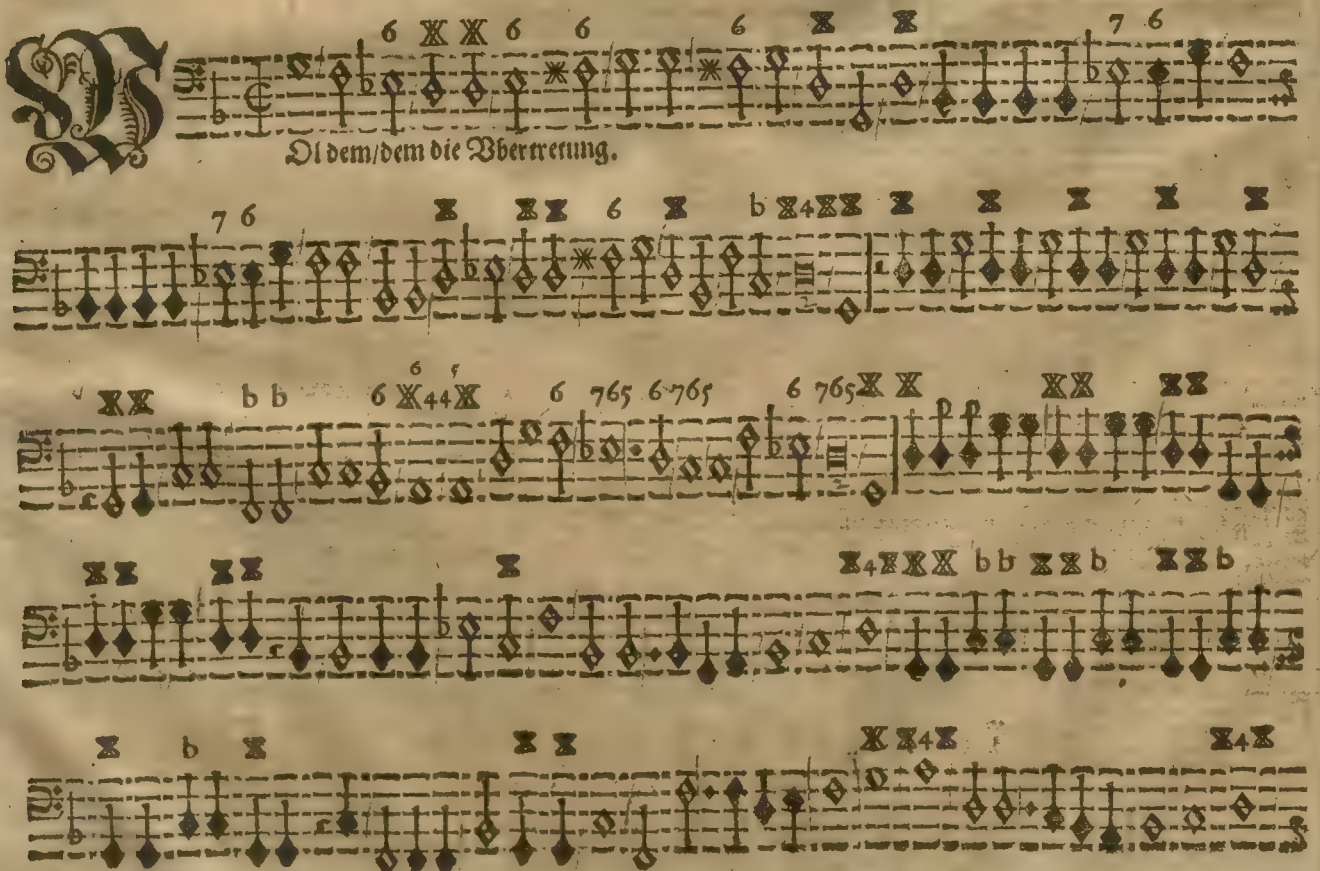 6 ♯ ♯ 6 6 6 ♯ ♯ 7 6
WOl dem/dem die Vbertretung.
7 6 ♯ ♯ ♯ 6 ♯ b ♯4♯♯ ♯ ♯ ♯ ♯ ♯
♯♯ b b 6 ♯44♯ 6 765 6 765 6 765♯ ♯ ♯♯ ♯♯
♯ ♯ ♯♯ ♯ ♯4♯♯♯ b b ♯♯ b ♯♯ b
♯ b ♯ ♯ ♯ ♯ ♯4♯ ♯4♯